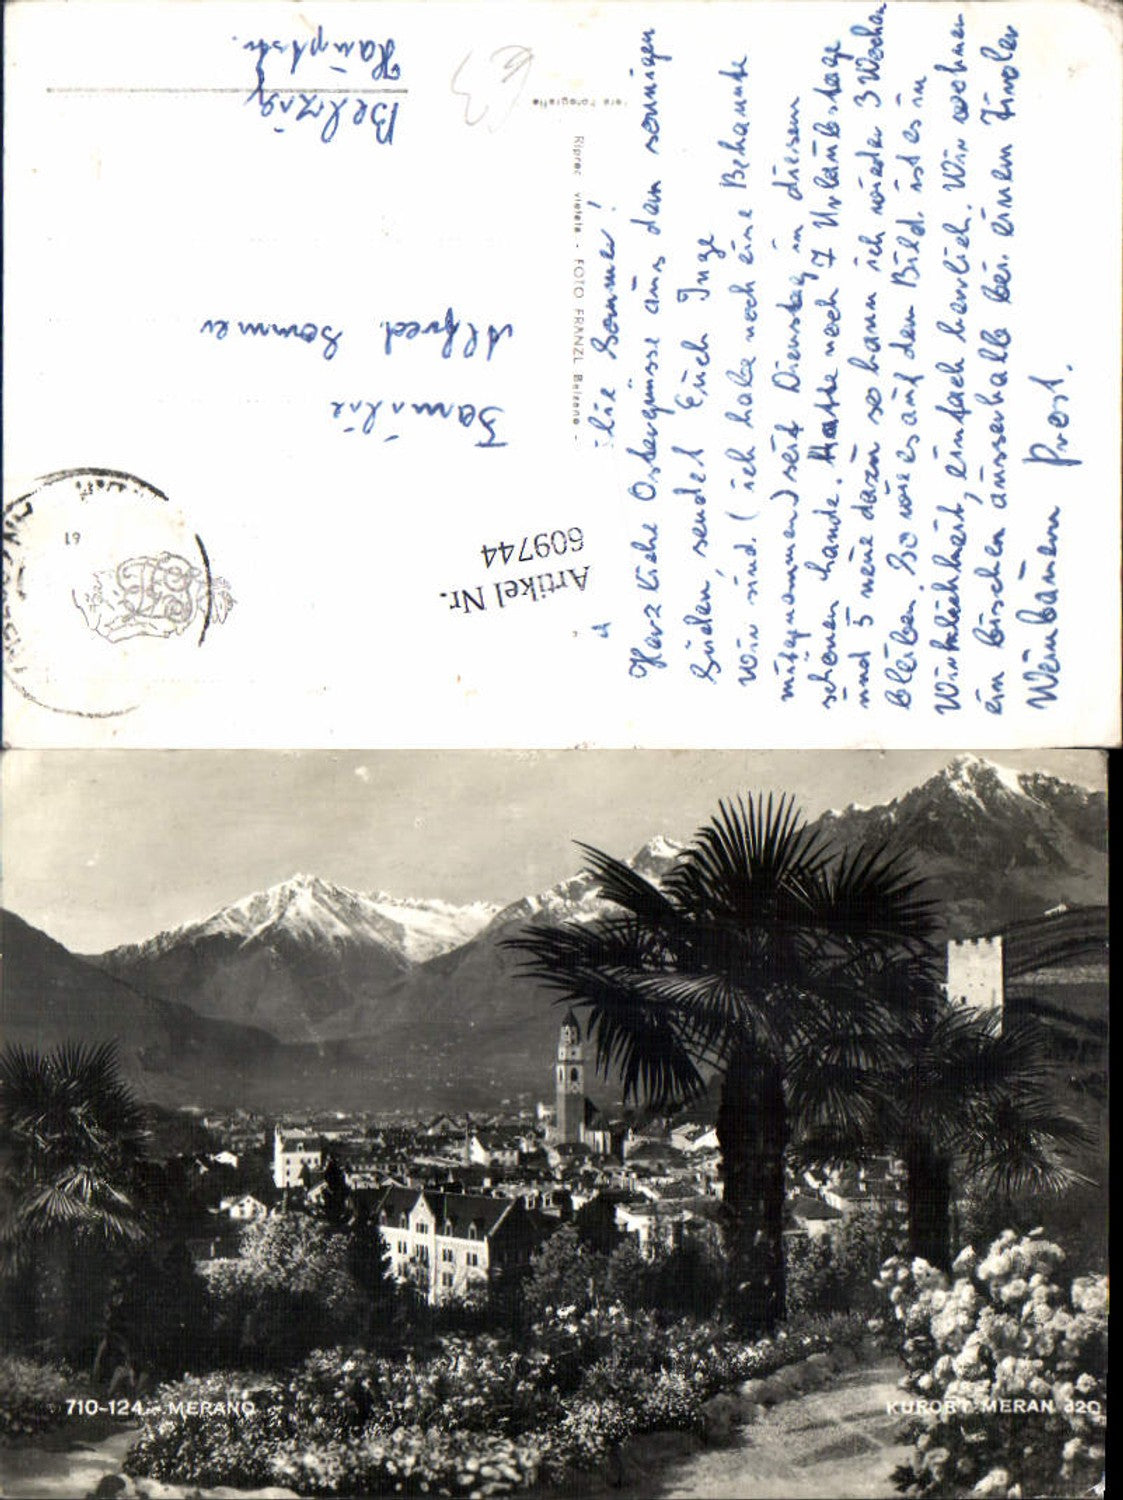 Familie
Alfred Sommer
Belzig
Hauptstr.
Riproc. vietata - FOTO FRANZL Bolzano -
Vera Fotografia
61
Artikel Nr.
609744
Sommer!
Herzliche Ostergrüsse aus dem sonnigen
Süden, sendet Euch Inge
Wir sind (ich habe noch eine Bekannte
mitgenommen) seit Dienstag in diesem
schönen Lande. Hatte noch 7 Urlaubstage
und 5 neue dazu so kann ich wieder 3 Wochen
bleiben. So wie es auf dem Bild ist es in
Wirklichkeit, einfach herrlich. Wir wohnen
ein bischen ausserhalb bei einem Tiroler
Weinbauern Prost.
710-124 - MERANO
KURORT MERAN 320